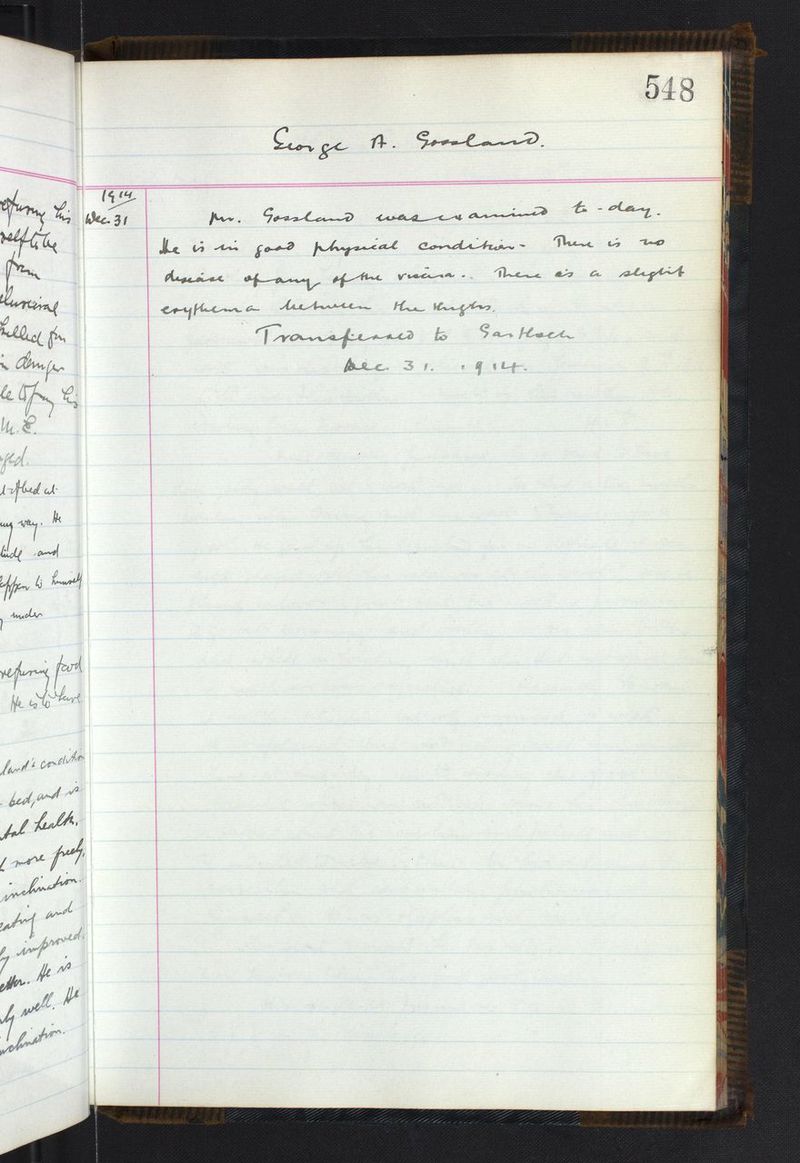 548
George A. Gossland.
1914
Dec. 31
Mr. Gossland was examined to-day.
He is in good physical condition. There is no
disease of any of the viscera. There is a slight
erythema between the thighs.
Transferred to Gartloch
Dec. 31. 1914.
refusing his
self to be
from
pulled from
in danger
M. E.
way. He
and
happen to himself
under
refusing food
He is to have
land's condition
bed, and is
health.
more freely,
inclination.
eating and
improved.
better. He is
well. He
inclination.